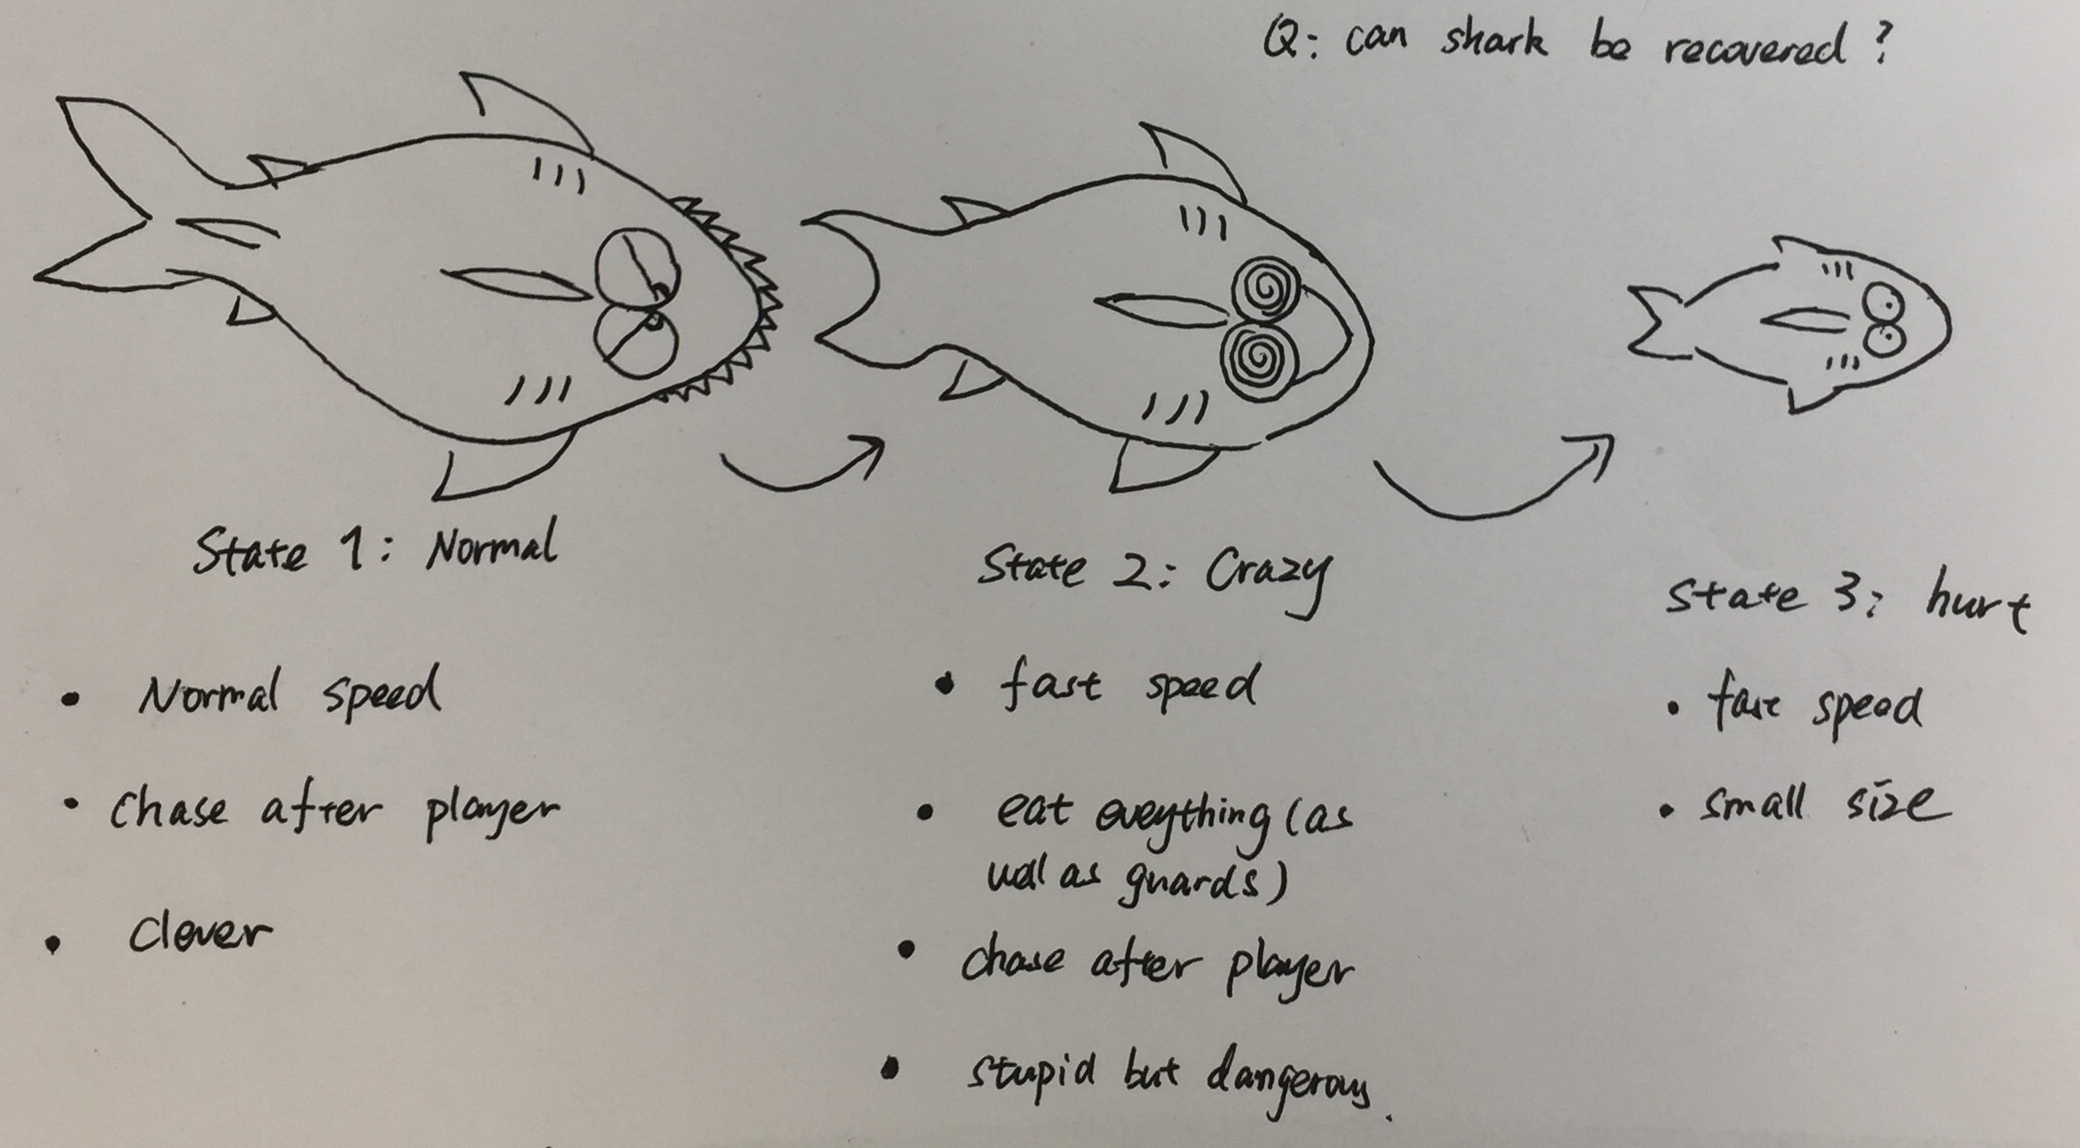 Q: can shark be recovered?
State 1: Normal
• Normal speed
• chase after player
• clever
State 2: Crazy
• fast speed
• eat eveything (as
well as guards)
• chase after player
• stupid but dangerous.
State 3: hurt
• fast speed
• small size